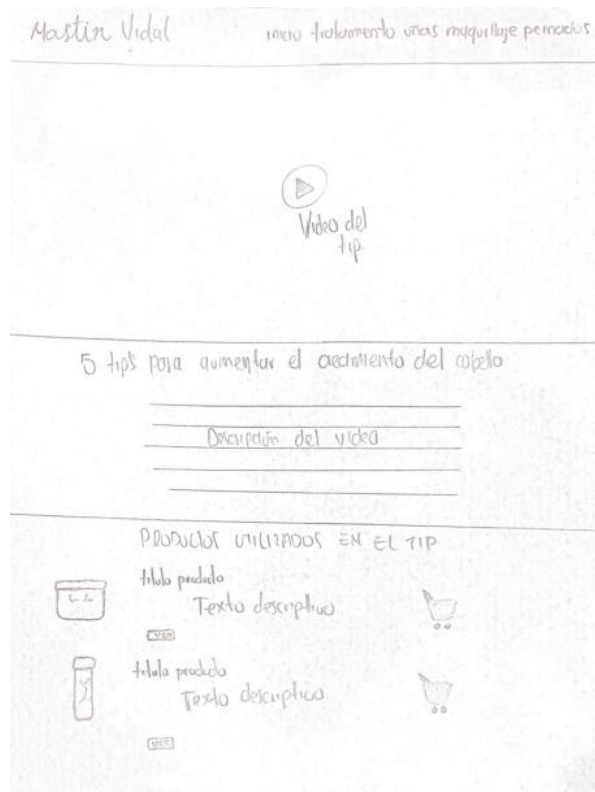 Mastin Vidal
inicio tratamento uñas maquillaje peinados
Video del
tip
5 tip's para aumentar el crecimiento del cabello
Descripción del video
PRODUCTOS UTILIZADOS EN EL TIP
titulo producto
Texto descriptivo
ver
titulo producto
Texto descriptico
ver